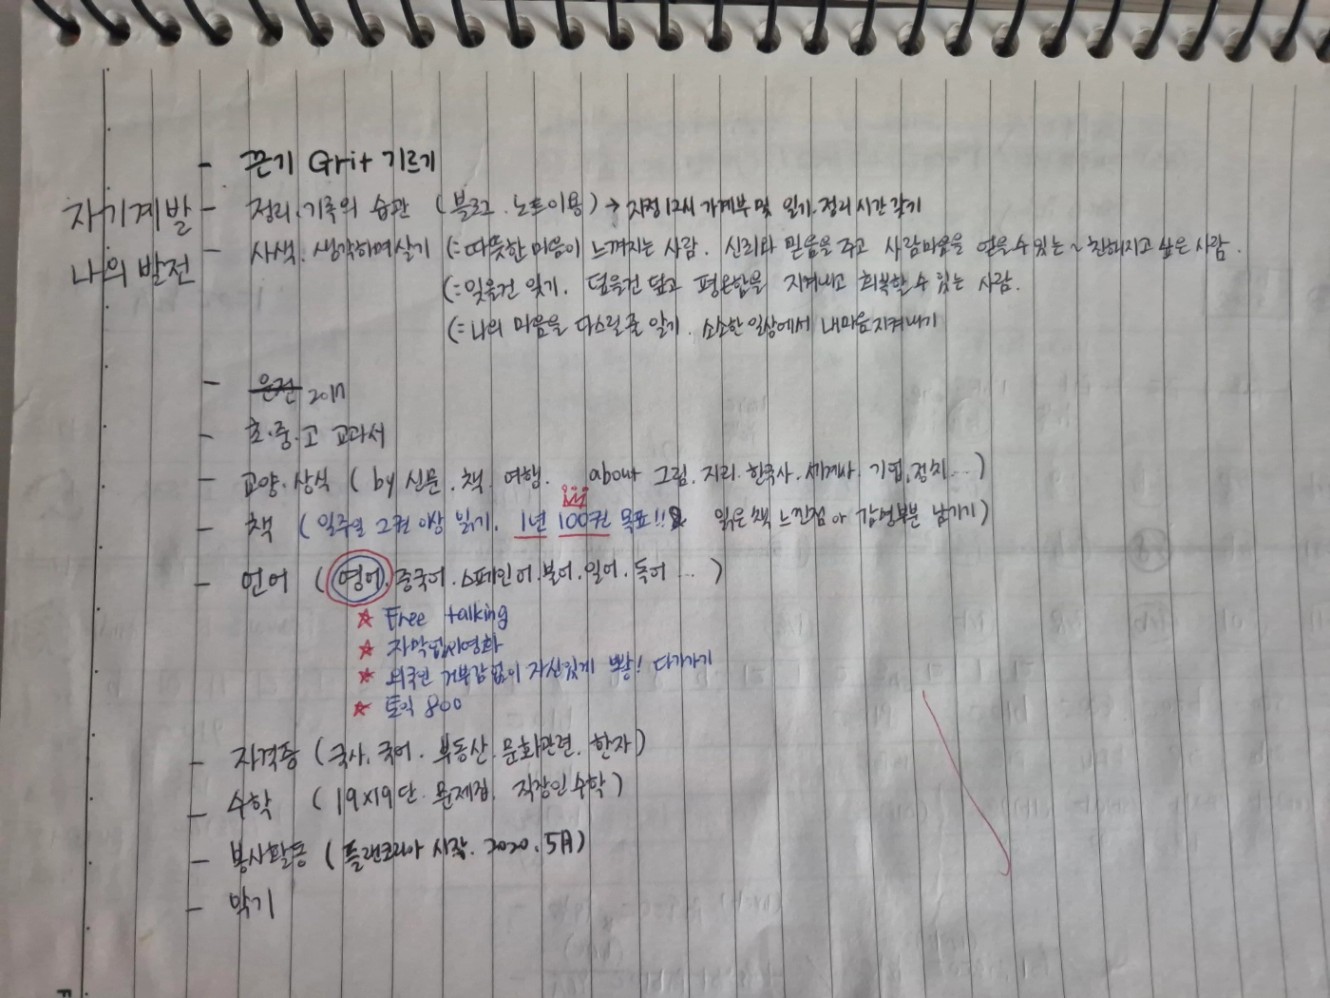 - 끈기 Grit 기르기
자기계발
- 정리.기록의 습관 (블로그.노트이용) → 자정 12시 가계부 및 일기.정리 시간 갖기
나의 발전
- 사색.생각하며살기 (=따뜻한 마음이 느껴지는 사람. 신뢰와 믿음을 주고 사람마음을 얻을수있는 ~ 친해지고 싶은 사람.
(=잊을건 잊기. 덮을건 덮고 평온함을 지켜내고 회복할 수 있는 사람.
(=나의 마음을 다스릴줄 알기. 소소한 일상에서 내마음지켜내기
- 운전 2017
- 초.중.고 교과서
- 교양.상식 (by 신문.책.여행. about 그림.지리.한국사.세계사.기업.정치...)
- 책 (일주일 2권 이상 읽기. 1년 100권 목표!! 읽은책 느낀점 아 감명부분 남기기)
- 언어 (영어.중국어.스페인어.불어.일어.독어...)
☆ Free talking
☆ 자막없이영화
☆ 외국인 거부감없이 자신있게 빠방! 다가가기
☆ 토익 800
- 자격증 (국사.국어.부동산.문화관련.한자)
- 수학 (19x19단.문제집.직장인수학)
- 봉사활동 (플랜코리아 시작.2020.5月)
- 악기